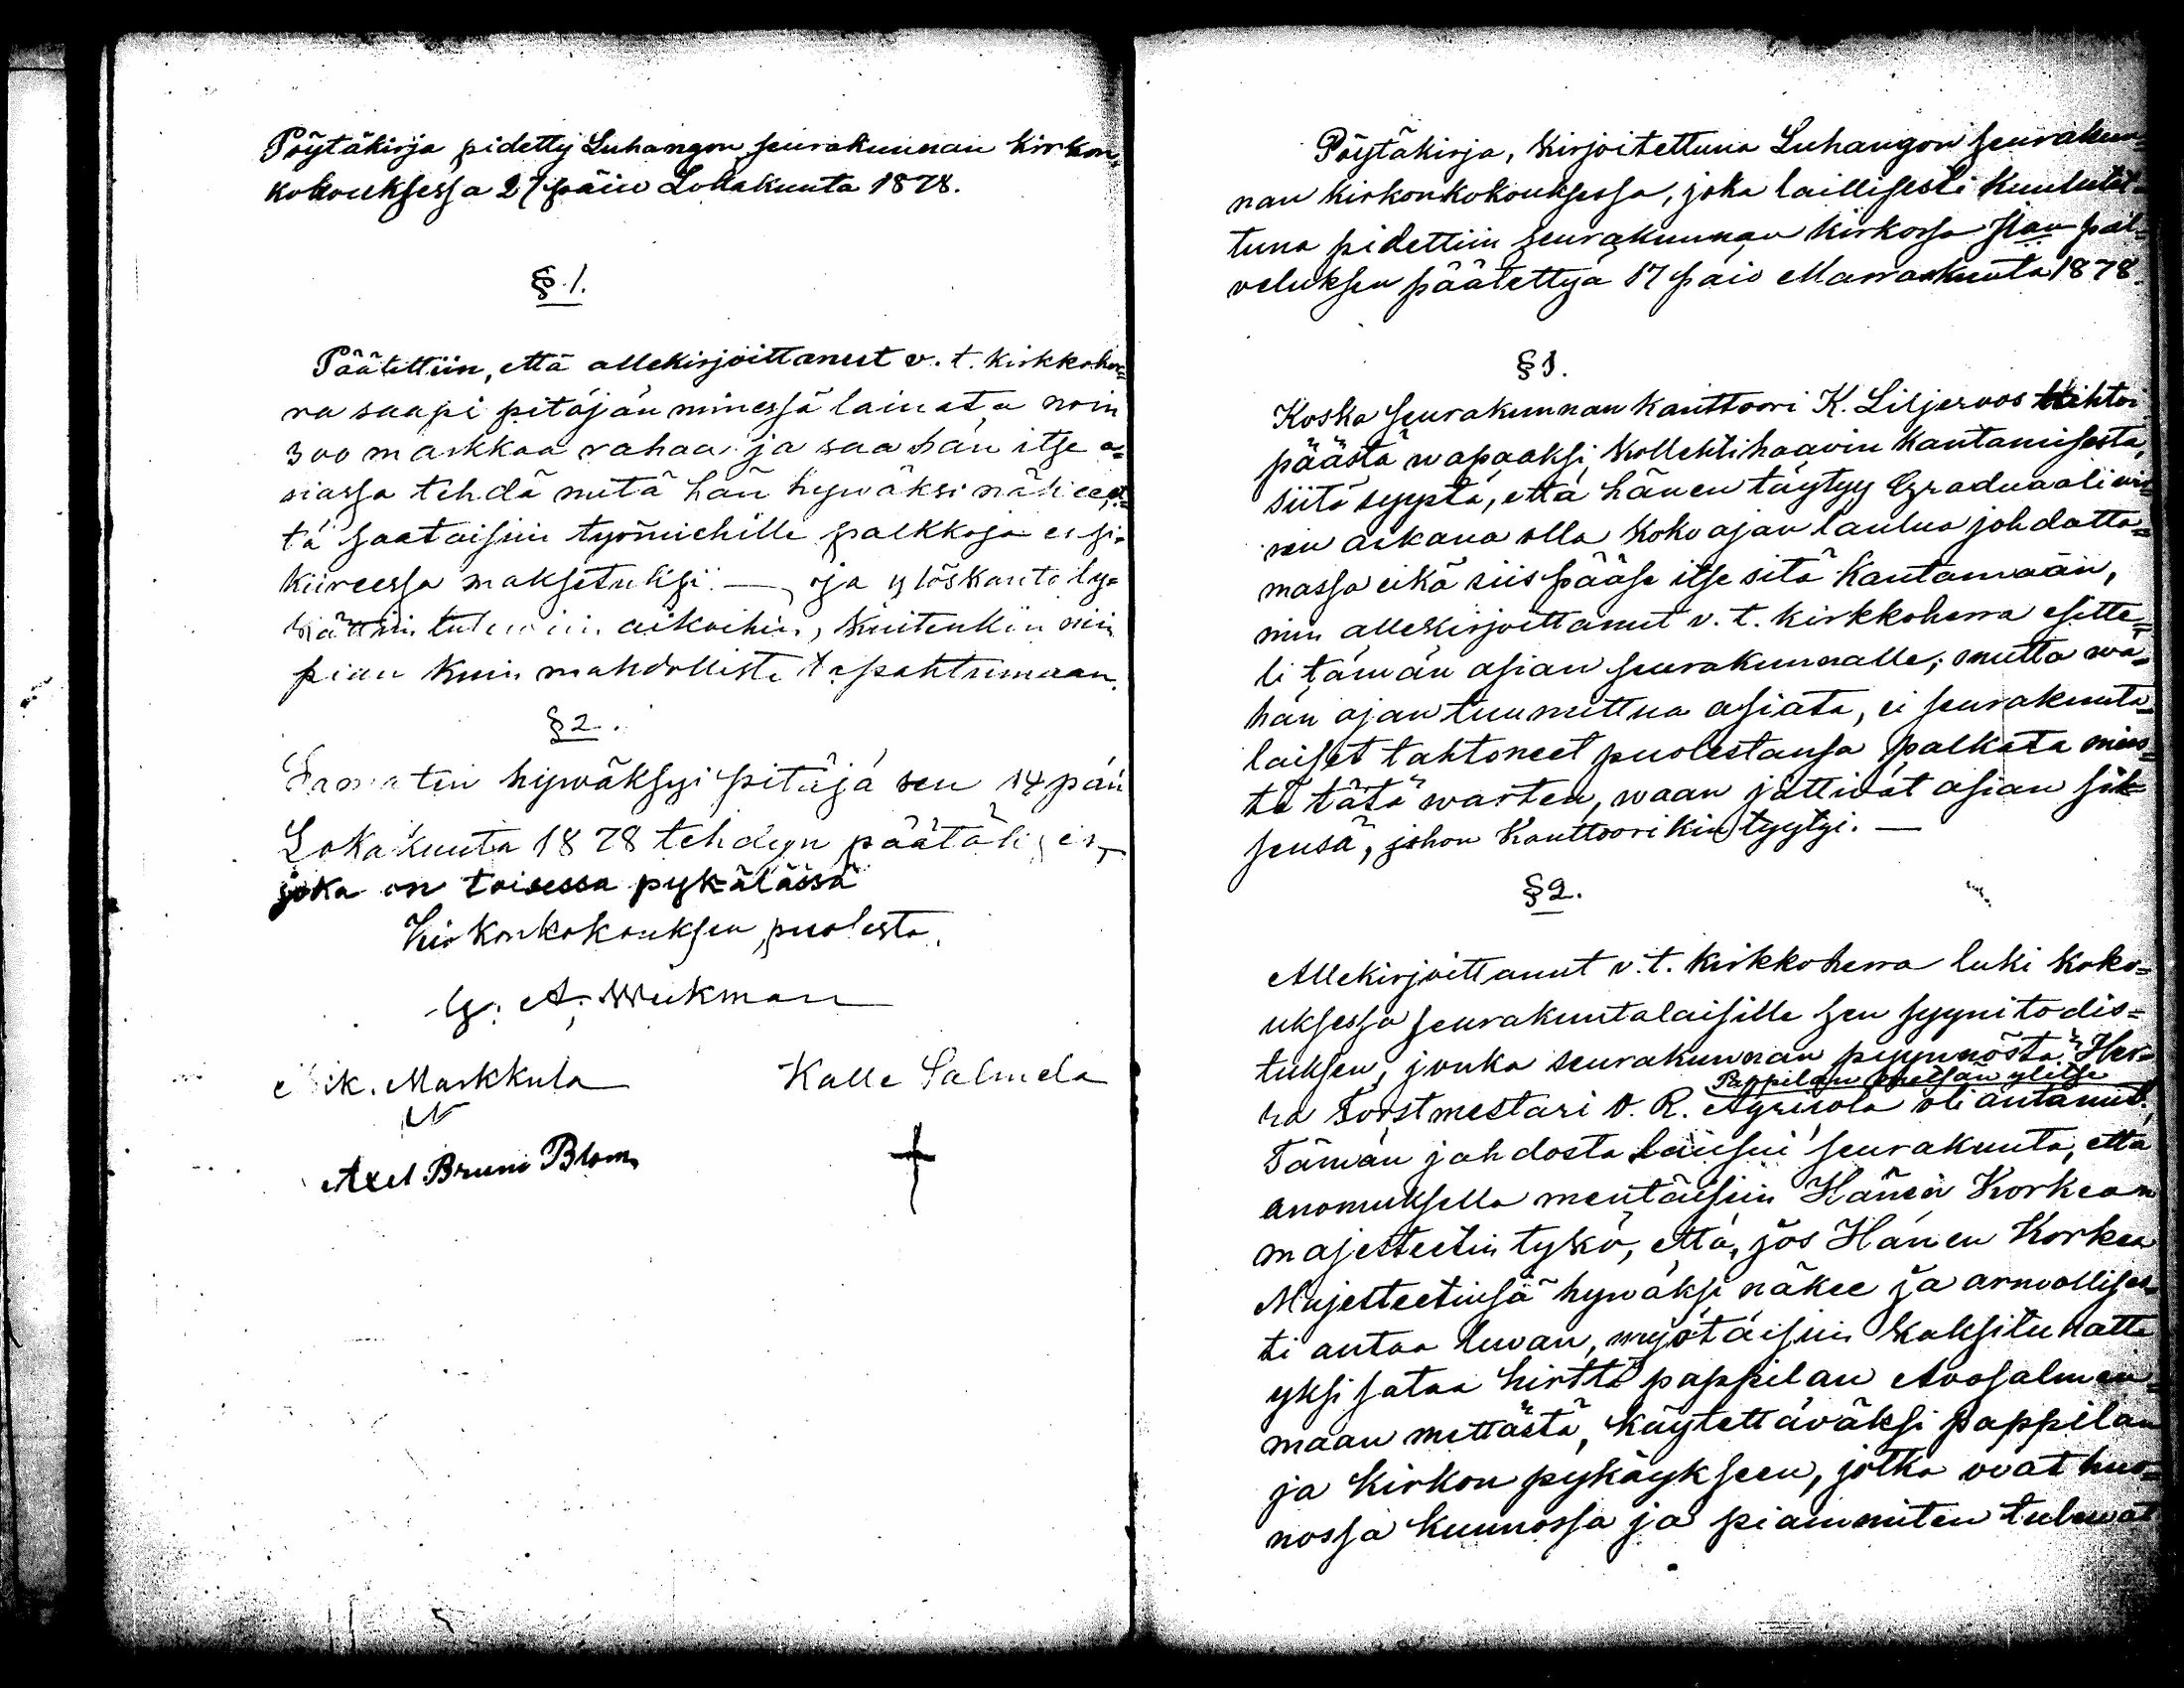 Pöytäkirja pidetty Luhangon seurakunnan kirkon¬
kokouksessa 27 päiv Lokakuuta 1878.
§ 1.
Päätettiin, että allekirjoittanut v. t. kirkkoher¬
ra saapi pitäjän nimessä lainata noin
300 markkaa rahaa ja saa hän itse a¬
siassa tehdä mitä hän hywäksi näkee, et¬
tä saataisiin työmiehille palkkoja ensi
kiireessa maksetuksi. — ja ylöskanto ly¬
kättiin tulewiin aikoihin, kuitenkin niin
pian kuin mahdollista tapahtumaan.
§ 2.
hywäksyi pitäjä sen 14 päiv
Lokakuuta 1878 tehdyn päätöksen,
joka on toisessa pykälässä
Kirkonkokouksen puolesta.
G. A. Wickman
Eik. Markkula Kalle Salmela
Axel Bruno Blom
Pöytäkirja, kirjoitettuna Luhangon seurakun¬
nan kirkonkokouksessa, joka laillisesti kuulutet¬
tuna pidettiin seurakunnan kirkossa Jlan pal¬
veluksen päätettyä 17 päiv Marraskuuta 1878.
§ 1.
Koska seurakunnan kanttoori K. Liljeroos tahtoi
päästä wapaaksi kollehtihaavin kantamisesta,
siitä syystä, että hänen täytyy Graduaali wir¬
ren aikana olla koko ajan laulua johdatta¬
massa eikä siis pääse itse sitä kantamaan,
niin allekirjoittanut v. t. kirkkoherra esitte¬
li tämän asian seurakunnalle; mutta wä¬
hän ajan tuumittua asiata, ei seurakunta¬
laiset tahtoneet puolestansa palkata mies¬
tä tätä warten, waan jättivät asian sik¬
sensä, johon Kanttoorikin tyytyi. —
§ 2.
Allekirjoittanut v. t. kirkkoherra luki koko¬
uksessa seurakuntalaisille sen syynitodis¬
tuksen, jonka seurakunnan pyynnöstä Her¬
Pappilan metsän ylitse
ra Forstmestari O. R. Agricola oli antanut.
Tämän johdosta lausui seurakunta, että
anomuksella mentäisiin Hänen Korkean
majesteetin tykö, että, jos Hänen Korkea
Majesteetinsä hywäksi näkee ja armollises¬
ti antaa luvan, myötäisiin kaksituhatta
yksi sataa hirttä pappilan Avosalmen¬
maan mettästä, käytettäväksi pappilan
ja kirkon pykäykseen, jotka ovat huo¬
nossa kunnossa ja piammiten tulewat